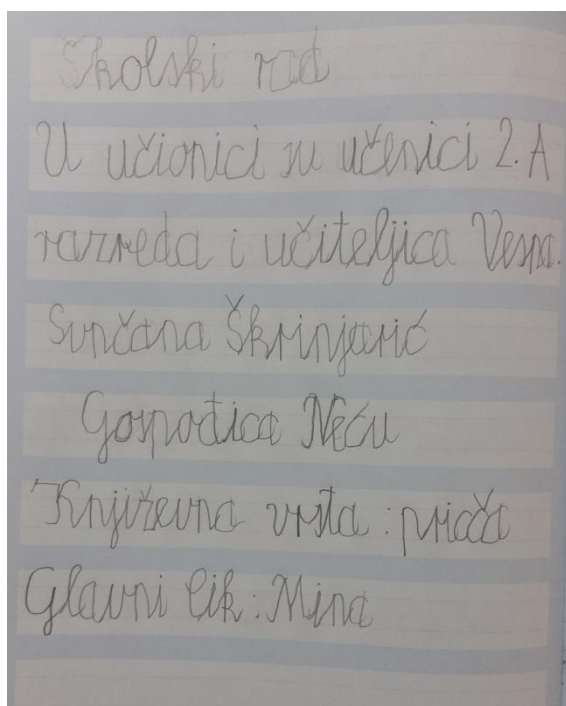 Školski rad
U učionici su učenici 2. A
razreda i učiteljica Vesna.
Sunčana Škrinjarić
Gospođica Neću
Književna vrsta : priča
Glavni lik : Mina